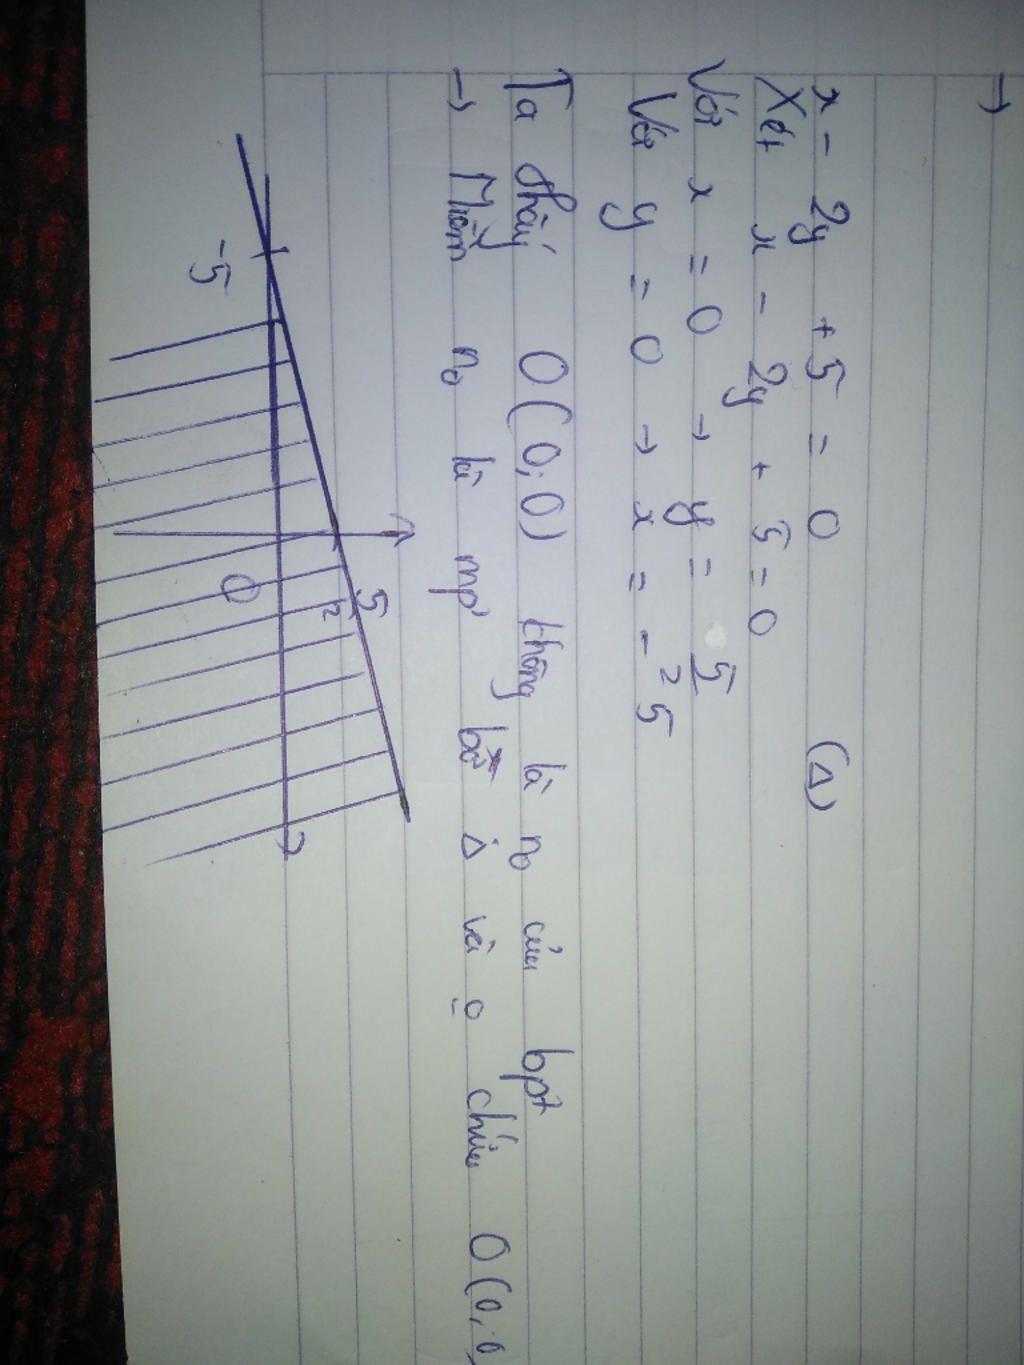 →
x - 2y + 5 = 0 (Δ)
Xét x - 2y + 5 = 0
Với x = 0 → y = 5/2
Với y = 0 → x = -5
Ta thấy O(0;0) không là n₀ của bpt
→ Miền n₀ là mp bờ Δ và o chứa O(0;0)
-5
O
5/2